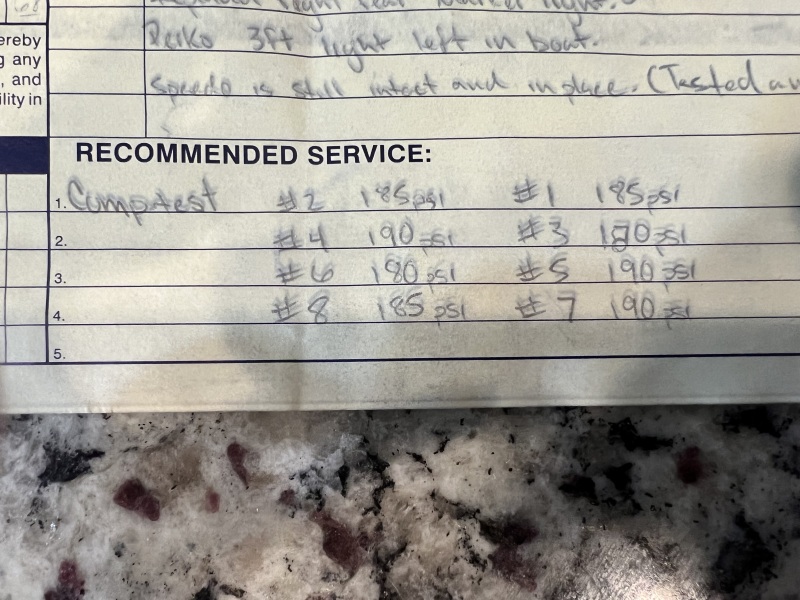 ereby
g any
, and
ility in
Perko 3ft light left in boat.
speedo is still intact and in place. (Tested
RECOMMENDED SERVICE:
1. Comptest #2 185psi #1 185psi
2. #4 190psi #3 psi
3. #6 180psi #5 190psi
4. #8 185psi #7 190psi
5.